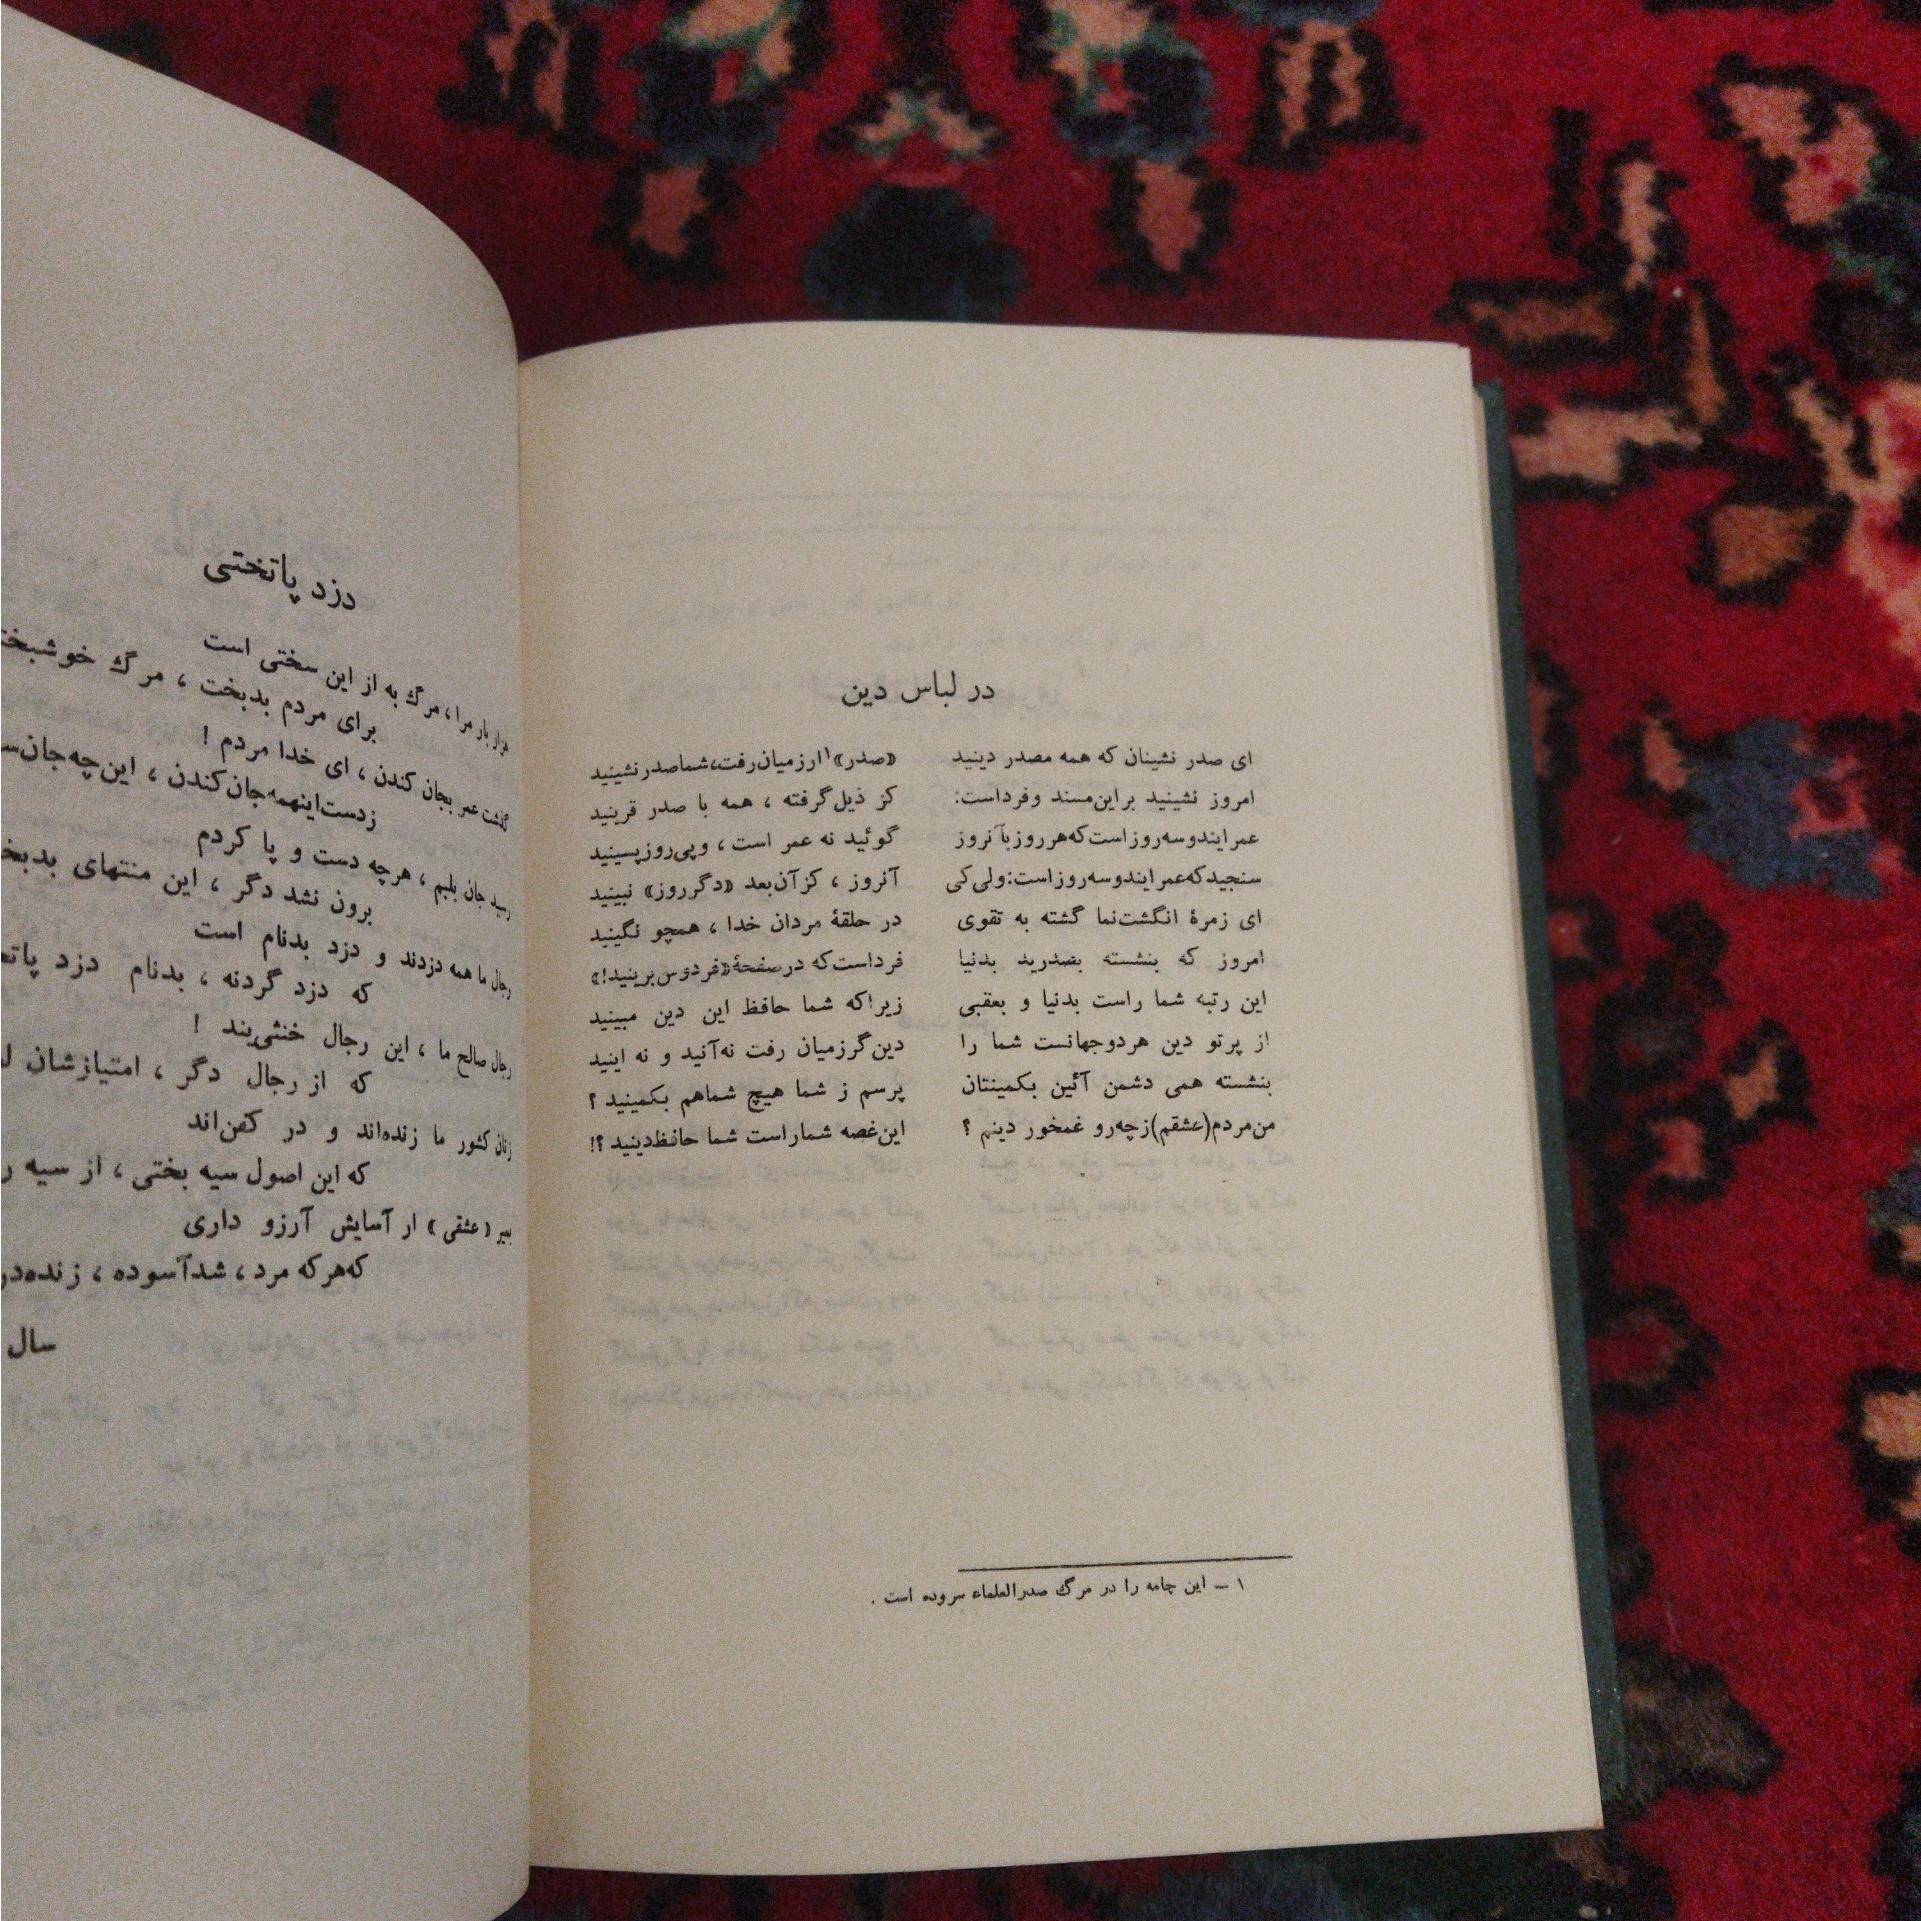 در لباس دین
ای صدر نشینان که همه مصدر دینید «صدر»۱ ارزمیان رفت، شما صدر نشینید
امروز نشینید براین مسند و فرداست: کز ذیل گرفته ، همه با صدر قرینید
عمر ایندو سه روز است که هر روز بآنروز گوئید نه عمر است ، و پی روز پسینید
سنجید که عمر ایندو سه روز است: ولی کی آنروز ، کز آن بعد «دگر روز» نبینید
ای زمرهٔ انگشت نما گشته به تقوی در حلقهٔ مردان خدا ، همچو نگینید
امروز که بنشسته بصدرید بدنیا فرداست که در صفحهٔ «فردوس برینید!»
این رتبه شما راست بدنیا و بعقبی زیرا که شما حافظ این دین مبینید
از پرتو دین هر دو جهانست شما را دین گر زمیان رفت نه آنید و نه اینید
بنشسته همی دشمن آئین بکمینتان پرسم ز شما هیچ شما هم بکمینید ؟
من مردم (عشقم) زچه رو غمخور دینم ؟ این غصه شمار است شما حافظ دینید ؟!
۱ – این چامه را در مرگ صدرالعلماء سروده است .
دزد پاتختی
هزار بار مرا ، مرگ به از این سختی است
برای مردم بدبخت ، مرگ
گذشت عمر بجان کندن ، ای خدا مردم !
زدست اینهمه جان کندن ، این چه
رسید جان بلبم ، هرچه دست و پا کردم
برون نشد دگر ، این منتهای
رجال ما همه دزدند و دزد بدنام است
که دزد گردنه ، بدنام دزد
رجال صالح ما ، این رجال خنثی‌یند !
که از رجال دگر ، امتیازشان
زنان کشور ما زنده‌اند و در کفن‌اند
که این اصول سیه بختی ، از سیه
بمیر «عشقی» ار آسایش آرزو داری
که هر که مرد ، شد آسوده ، زنده
سال